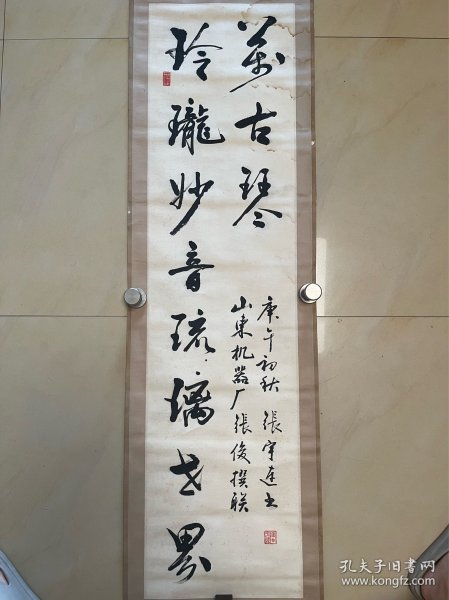 玲瓏妙音琉璃世界
萬古琴
山東机器厂張俊撰联
庚午初秋 張宇书
孔夫子旧书网
www.kongfz.com